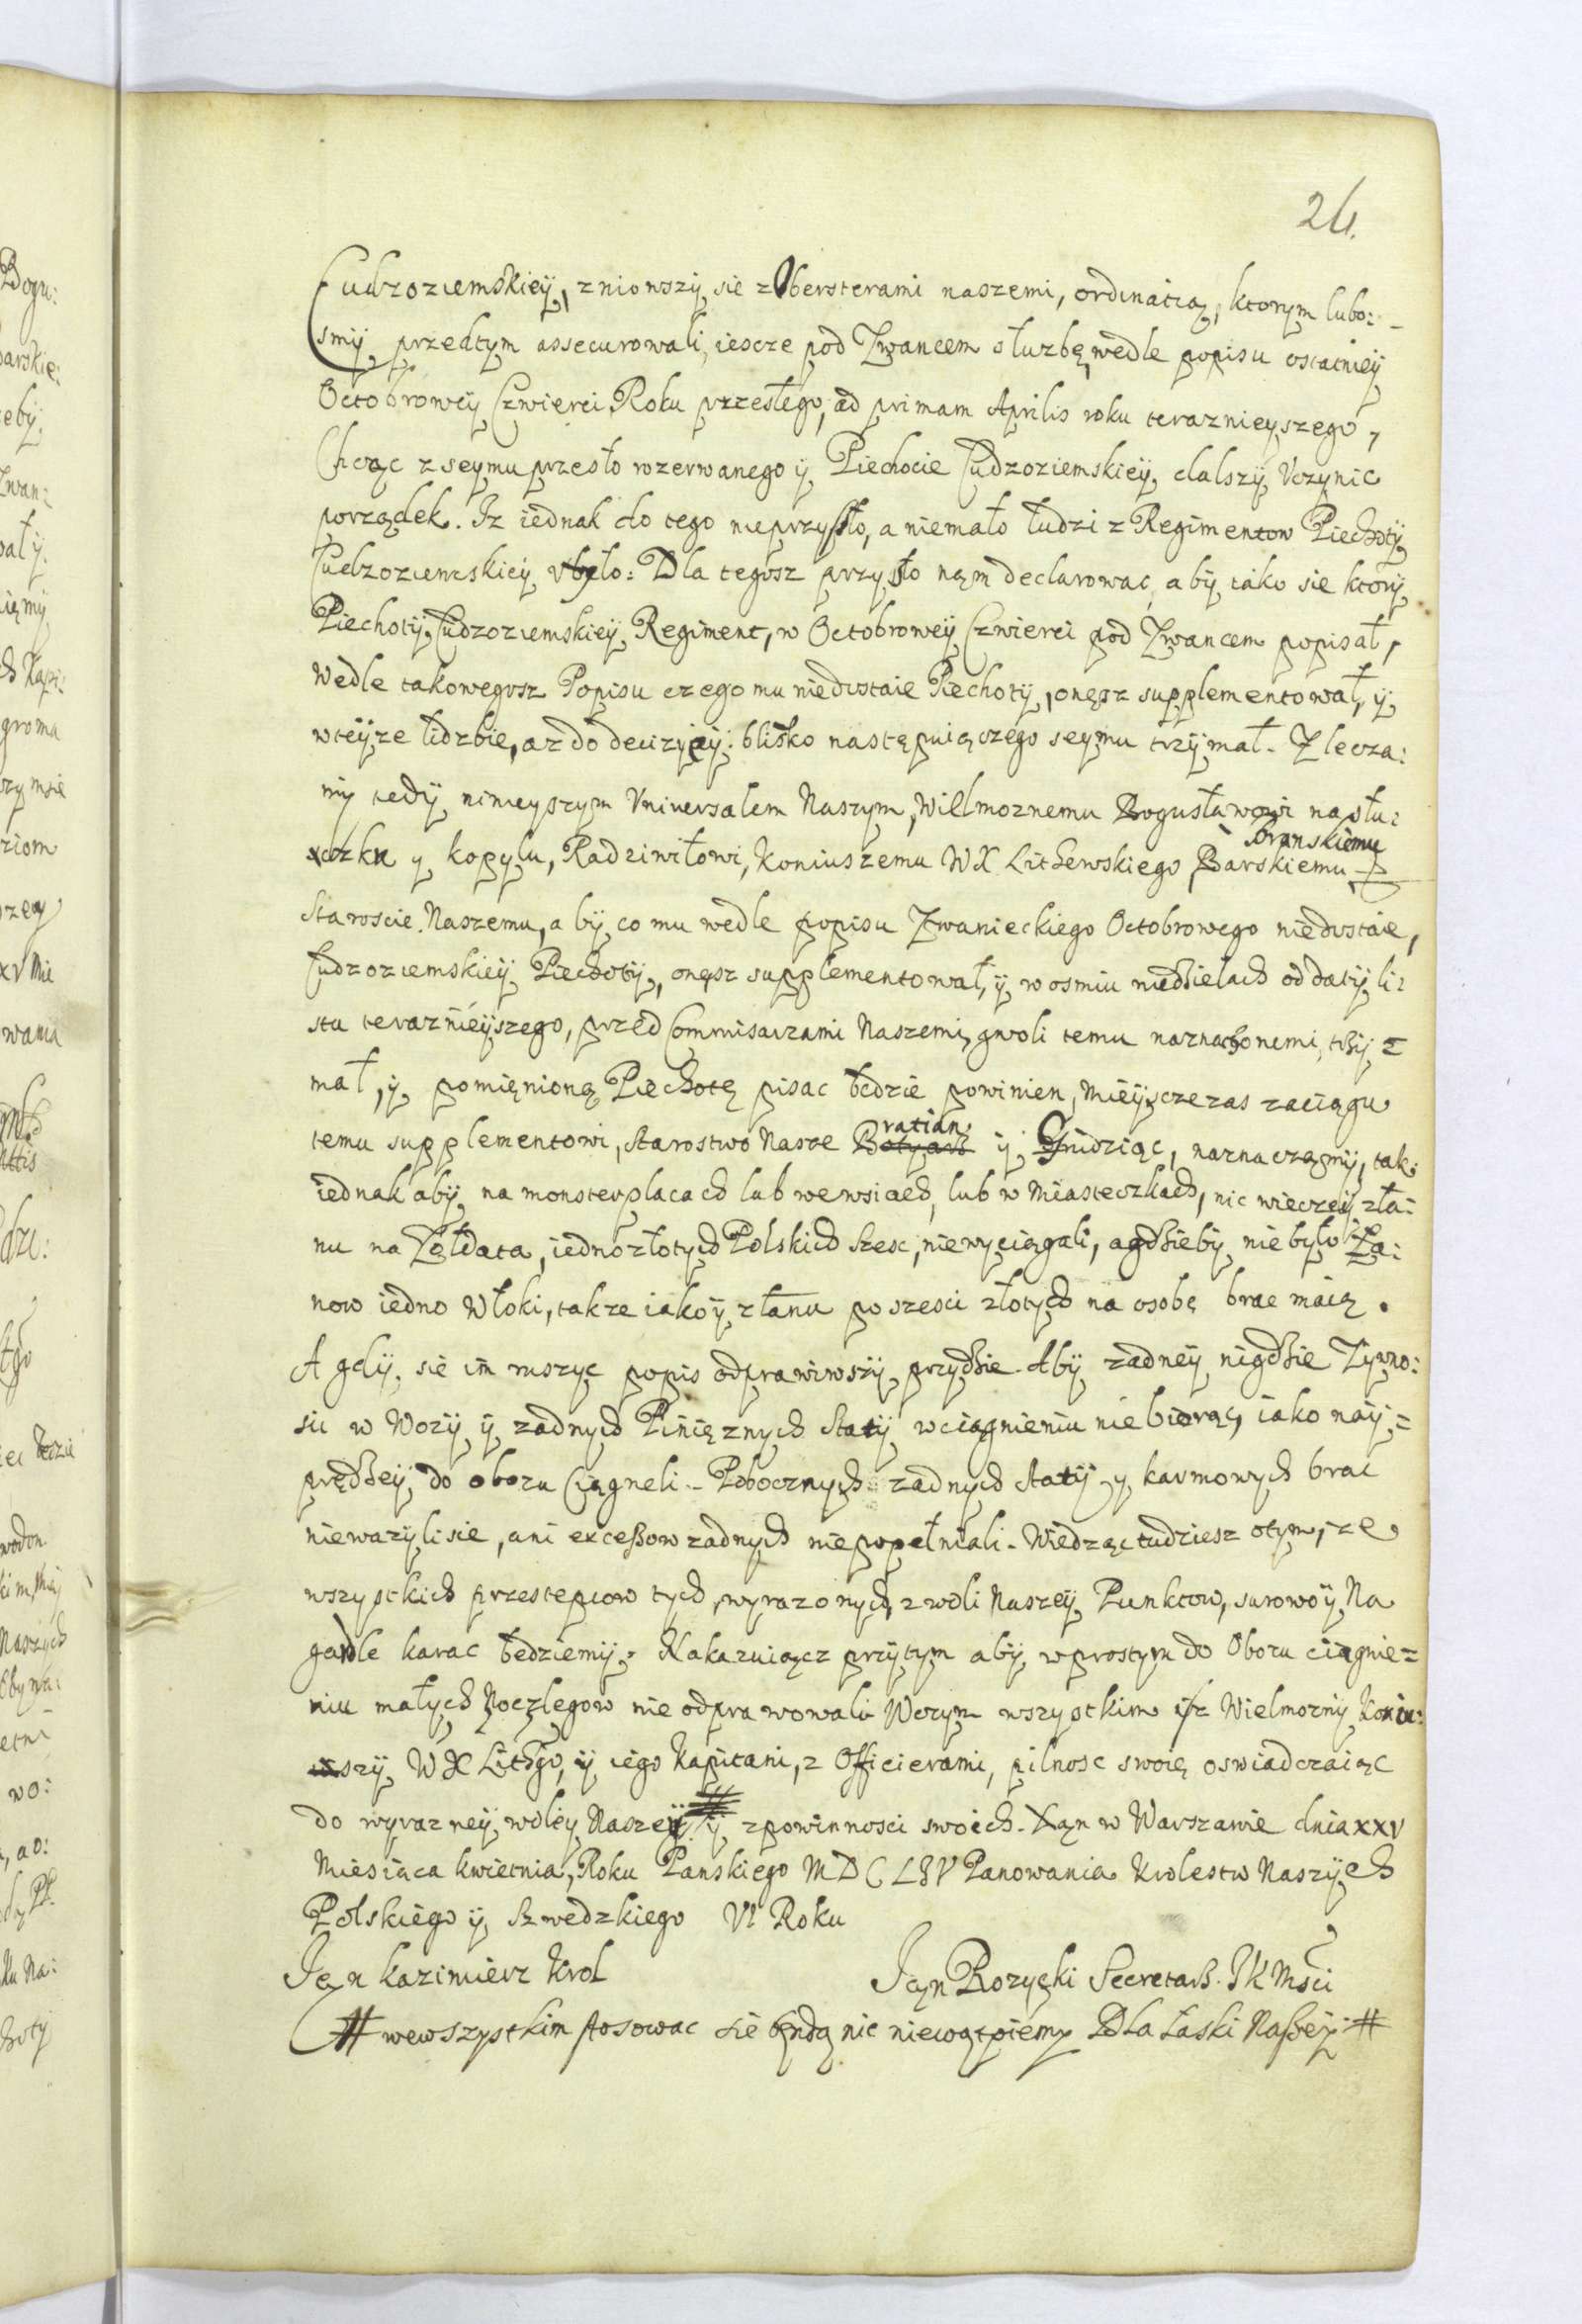 26.
Cudzoziemskieÿ, zniowszÿ sie z Obersterami naszemi, ordinatią, ktorym lubo:
smÿ przedtym assecurowali, iescze pod Zwancem służbę, wedle popisu ostatnieÿ
Octobroweÿ Czwierci, Roku przesłego, ad primam Aprilis roku teraznieyszego,
Chcąc z seymu przesło rozerwanego ÿ Piechocie Cudzoziemskieÿ, dalszÿ Vczynic
porządek. Iz iednak do tego nieprzysło, a niemało ludzi z Regimentow Piechotÿ
Cudzoziemskieÿ vbyło: Dla tegosz przysło nąm declarowac, abÿ iako sie ktorÿ
Piechotÿ Cudzoziemskieÿ Regiment, w Octobroweÿ Czwierci pod Zwancem popisał,
Wedle takowegosz Popisu czego mu niedostaie Piechotÿ, onęsz supplementował, ÿ
wteÿze lidzbie, az do decizÿeÿ blisko następuiączego seymu trzÿmał. Zlecza:
mÿ tedÿ ninieyszym Vniversalem Naszym, Wielmoznemu Bogusławowi na słu:
czku y kopylu, Radziwiłowi, Koniuszemu WX Lithewskiego, Barskiemu
branskiemu
Staroscie Naszemu, a bÿ co mu wedle popisu Zwanieckiego Octobrowego niedostaie,
Cudzoziemskieÿ Piechotÿ, onęsz supplementował, ÿ w osmiu niedzielach od datÿ li:
stu teraznieÿszego, przed Commisarzami Naszemi, gwoli temu naznaczonemi, trzÿ:
mał, ÿ pomięnioną Piechotę pisac będzie powinien, Mieÿscze zas zaciągu
temu supplementowi, Starostwo Nasze ratian ÿ Grudziąc, naznaczamÿ, tak:
iednak abÿ na monsterplacach lub wewsiach, lub w Miasteczkach, nic wieczeÿ z ła:
nu na Zołdata, iedno złotych Polskich szesc, niewyciągali, a gdzieby nie było Ła:
now iedno Włoki, takze iako ÿ z łanu po szesci złotych na osobę brac maią.
A gdÿ sie im ruszyc popis odprawiwszÿ przydzie. Abÿ zadneÿ nigdzie Zÿwno:
sci w Wozÿ ÿ zadnych Piniężnych Statÿ w ciągnieniu nie biorąc, iako naÿ:
prędzeÿ do obozu Ciągneli. Pobocznych zadnych Statÿ y karmowych brac
niewazÿli sie, ani excessow zadnych niepopełniali. Wiedząc tudziesz o tym, ze
wszystkich przestepcow tych, wyrazonych, z woli Naszeÿ Punktow, surowoÿ Na
gardle karac będziemÿ. Nakazuiącz przÿtym abÿ w prostym do Obozu ciągnie:
niu małych Noczlegow nie odprawowali. Wczym wszystkim Vr Wielmoznÿ Koniu:
szÿ WX Lithgo, ÿ iego Kapitani, z Officierami, pilnosc swoię oswiadczaiąc
do wyrazneÿ woleÿ Naszeÿ # ÿ z powinnosci swoich. Dąn w Warszawie dnia XXV
Miesiąca kwietnia, Roku Panskiego MDCLIV Panowania Krolestw Naszÿch
Polskiego ÿ Szwedzkiego VI Roku
Ian Kazimierz Krol
Ian Rozycki Secretarz. IK Mści
# wewszystkim stosowac sie będą nic niewątpiemy Dla Łaski Naszeÿ. #